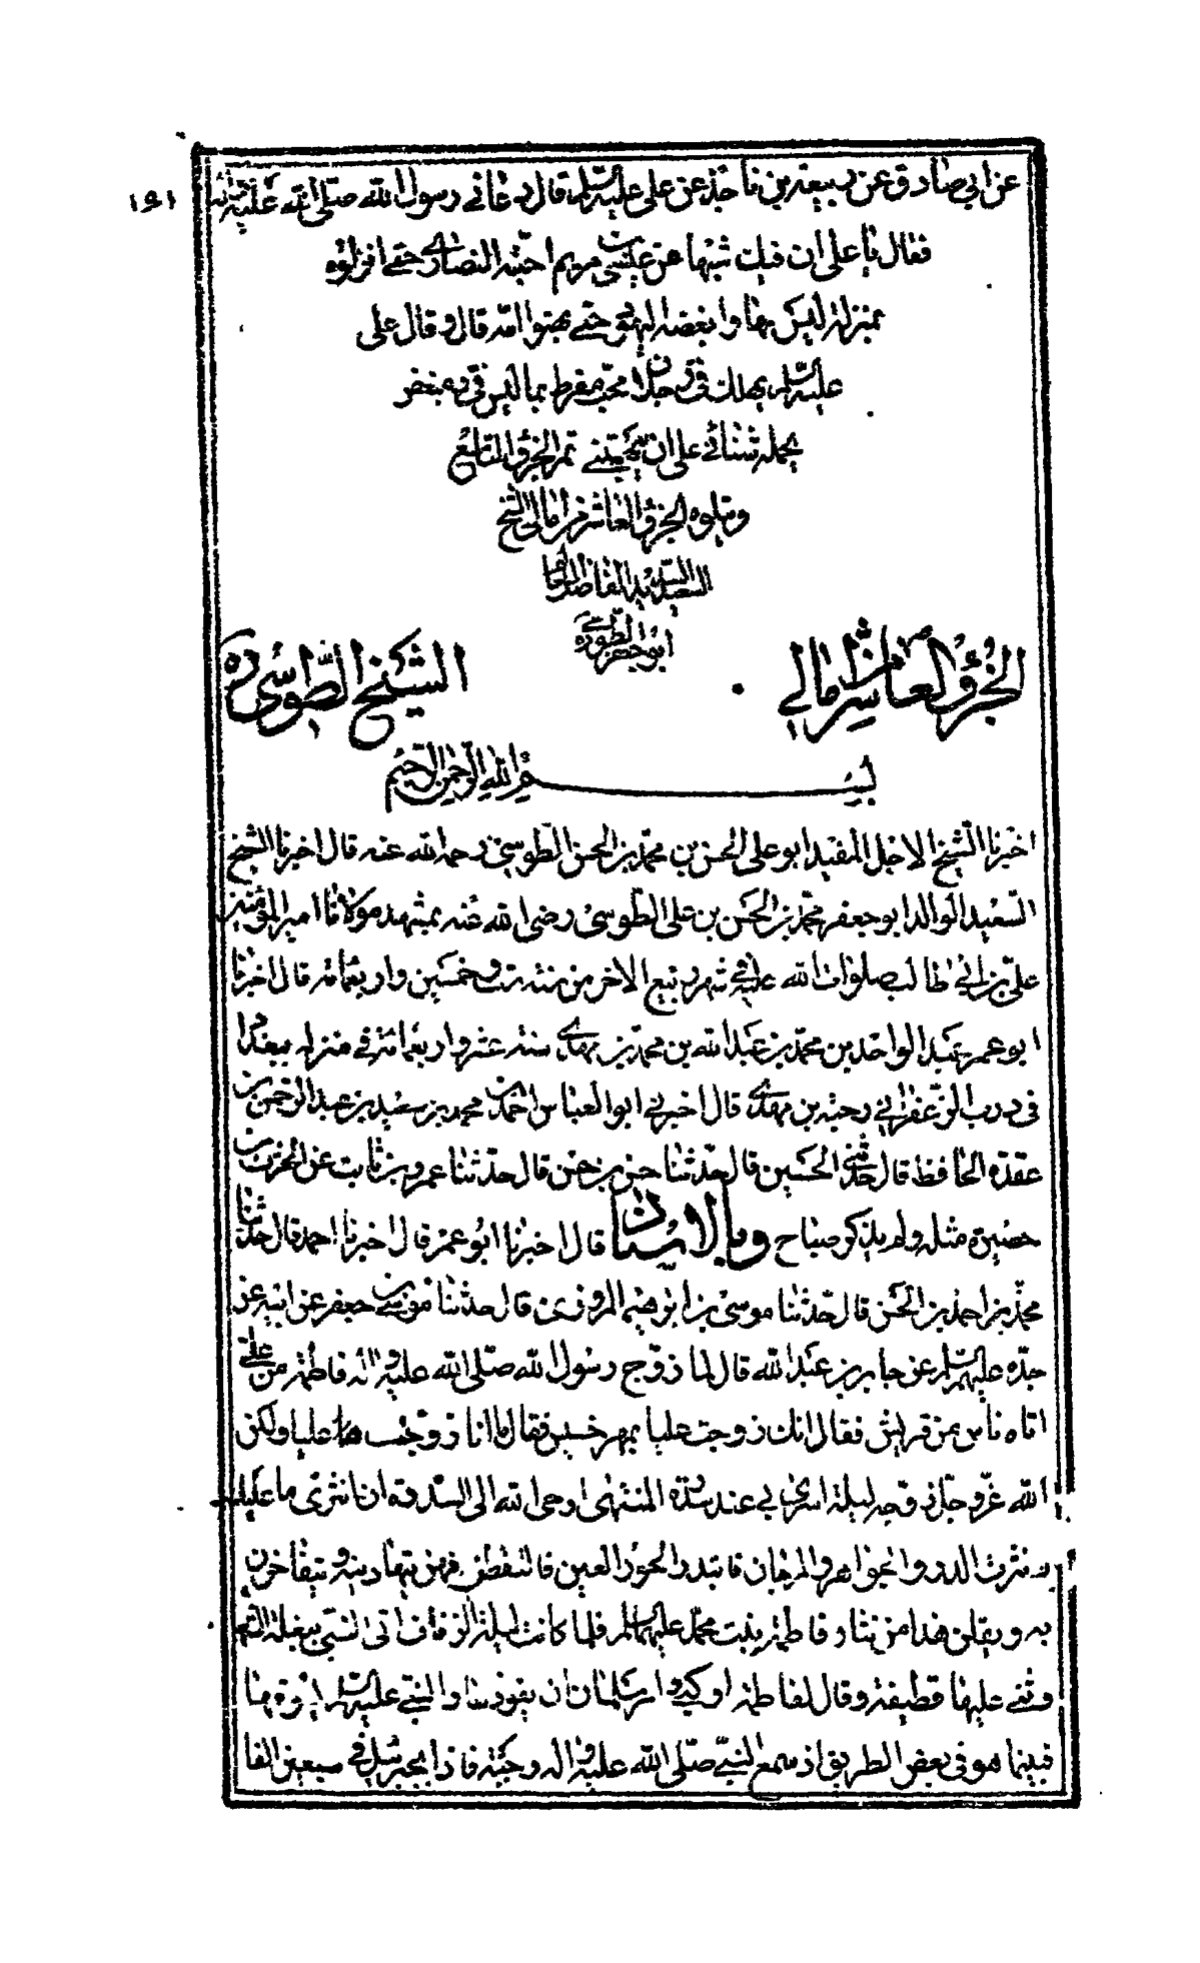 ١٥١
عن ابي صادق عن ربيعة بن ناجذ عن علي عليه السلم قال دعاني رسول الله صلى الله عليه واله
فقال يا على ان فيك شبها من عيسى بن مريم احبته النصارى حتى انزلوه
بمنزلة ليس بها وابغضه اليهود حتى بهتوا امه قال وقال على
عليه السلم يهلك في رجلان محب مفرط بما ليس في ومبغض
يحمله شنانى على ان يبهتنى تم الجزؤ التاسع
ويتلوه الجزؤ العاشر من امالى الشيخ
السعيد السديد الفاضل
ابو جعفر الطوسى ره
الجزؤ العاشر من امالي الشيخ الطوسى ره
بسم الله الرحمن الرحيم
اخبرنا الشيخ الاجل المفيد ابو على الحسن بن محمد بن الحسن الطوسى رحمه الله عنه قال اخبرنا الشيخ
السعيد الوالد ابو جعفر محمد بن الحسن بن على الطوسى رضى الله عنه بمشهد مولانا امير المؤمنين
على بن ابي طالب صلوات الله عليه في شهر ربيع الاخر من سنة ست وخمسين واربعمائة قال اخبرنا
ابو عمر عبد الواحد بن محمد بن عبد الله بن محمد بن مهدى سنة عشر واربعمائة في منزله ببغداد
في درب الزعفراني رحبة بن مهدى قال اخبرني ابو العباس احمد بن محمد بن سعيد بن عبد الرحمن بن
عقدة الحافظ قال حدثني الحسين قال حدثنا حسن بن حسن قال حدثنا عمرو بن ثابت عن الحرث بن
حصيرة مثله ولم يذكر صباح وبالاسناد قال اخبرنا ابو عمر قال اخبرنا احمد قال حدثنا
محمد بن احمد بن الحسن قال حدثنا موسى بن ابرهيم المروزى قال حدثنا موسى بن جعفر عن ابيه عن
جده عليهم السلم عن جابر بن عبد الله قال لما زوج رسول الله صلى الله عليه واله فاطمة من على
اتاه ناس من قريش فقال انك زوجت عليا بمهر خسيس فقال ما انا زوجت عليا ولكن
الله عز وجل زوجه ليلة اسرى بي عند سدرة المنتهى اوحى الله الى السدرة ان انثرى ما عليك
نثرت الدر والجواهر والمرجان فابتدر الحور العين فالتقطن فهن يتهادينه ويتفاخرن
به ويقلن هذا من نثار فاطمة بنت محمد عليهما السلم فلما كانت ليلة الزفاف اتى النبي ببغلته الشهبا
وثنى عليها قطيفة وقال لفاطمة اركبى وامر سلمان ان يقودها والنبى عليه السلم يسوقها
فبينما هو في بعض الطريق اذ سمع النبي صلى الله عليه واله وجبة فاذا بجبرئيل في سبعين الفا